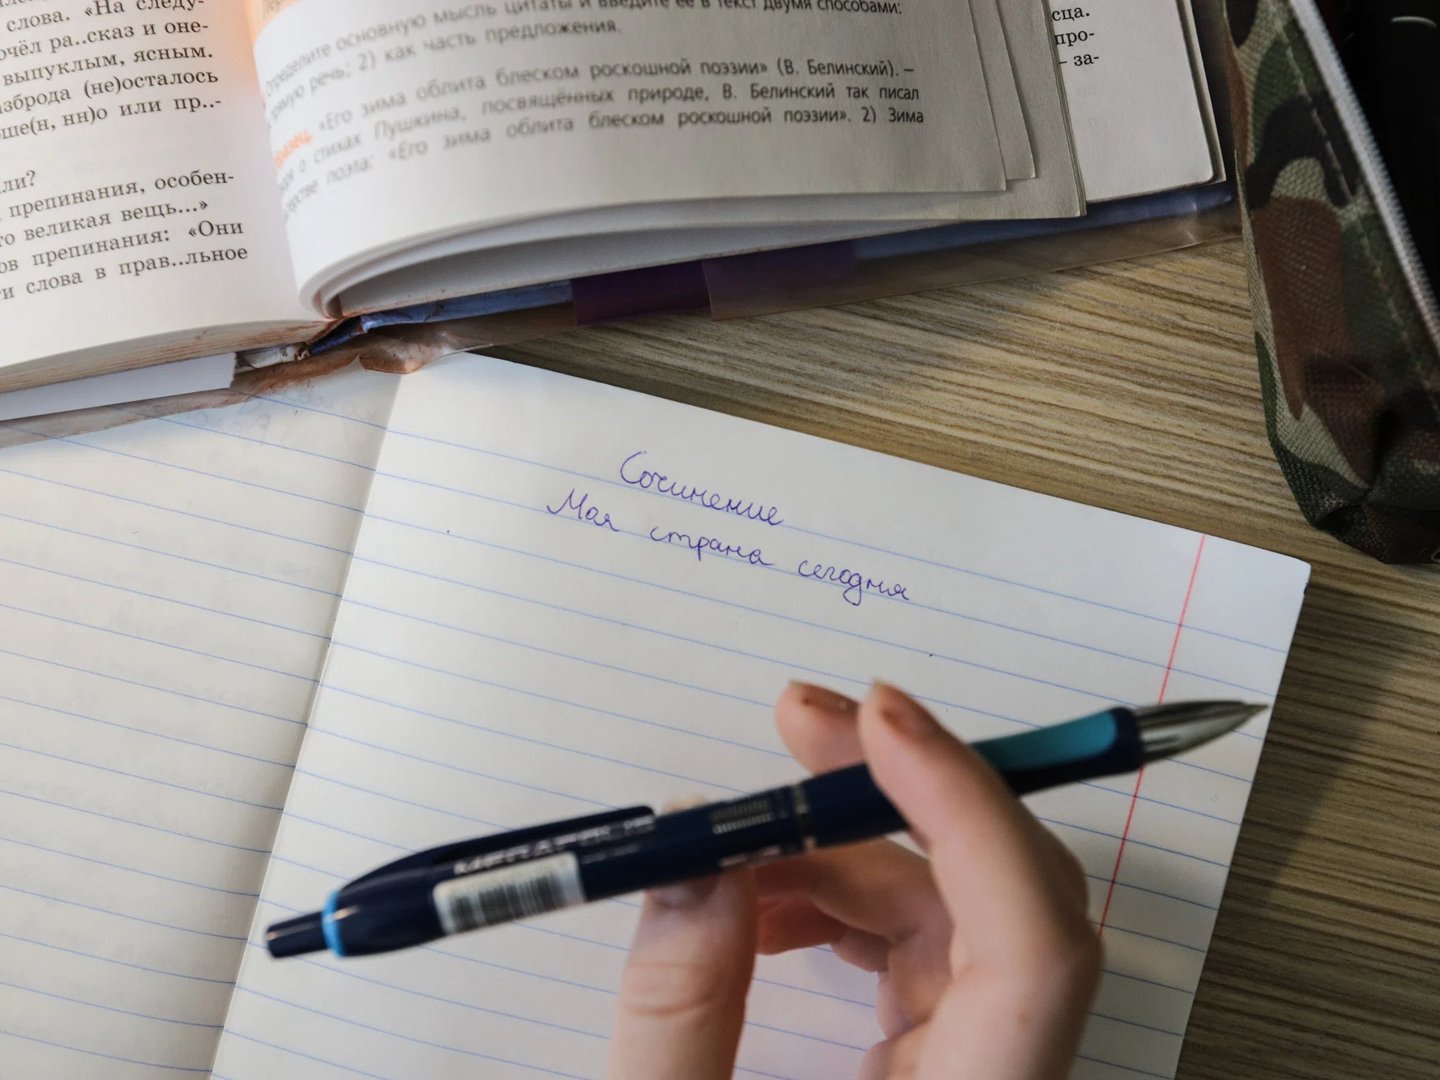 слова. «На следу-
ра..сказ и оне-
выпуклым, ясным.
(не)осталось
или пр..-
ли?
препинания, особен-
великая вещь...»
препинания: «Они
и слова в прав..льное
основную мысль цитаты и введите её в текст двумя способами:
речь; 2) как часть предложения.
«Его зима облита блеском роскошной поэзии» (В. Белинский). –
о стихах Пушкина, посвящённых природе, В. Белинский так писал
поэта: «Его зима облита блеском роскошной поэзии». 2) Зима
сца.
про-
– за-
Сочинение
Моя страна сегодня